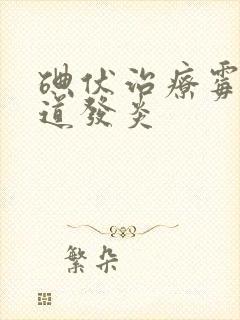 碘伏治療霉
道發炎
繁朵